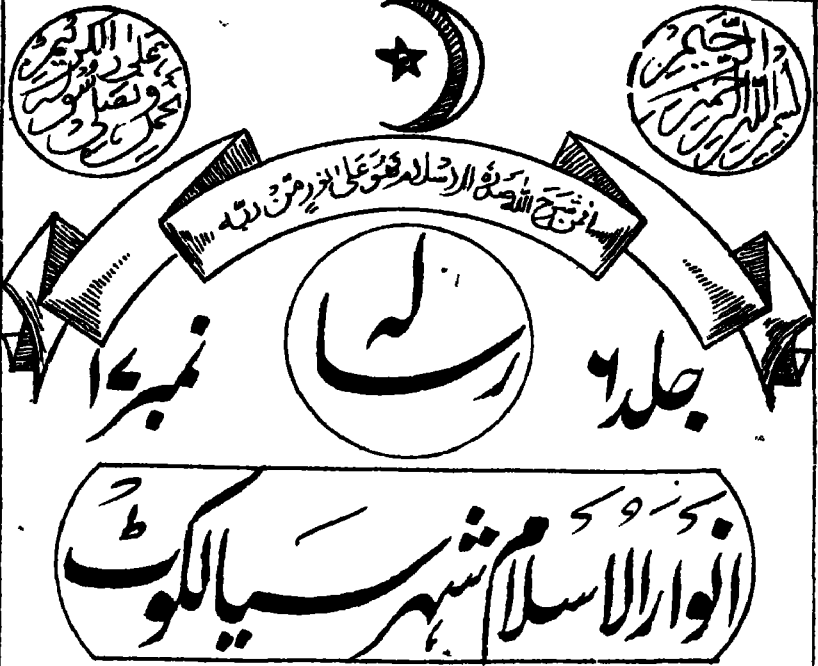 بسم اللہ الرحمن الرحیم
نحمدہ ونصلی علی رسولہ الکریم
افمن شَرَحَ اللّٰه صدرہ للاسلام فهُوَ عَلیٰ نورٍ مِّن ربّہ
رسالہ
جلد ۶
نمبر ۱۷
انوار الاسلام شہر سیالکوٹ